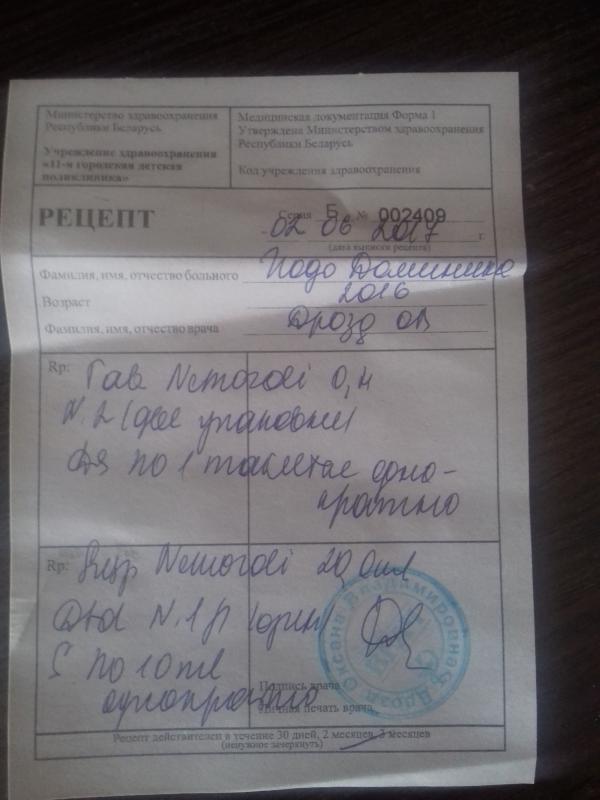 Министерство здравоохранения
Республики Беларусь
Учреждение здравоохранения
«11-я городская детская
поликлиника»
Медицинская документация Форма 1
Утверждена Министерством здравоохранения
Республики Беларусь
Код учреждения здравоохранения
РЕЦЕПТ
Серия Б № 002409
02 06 2017 г.
(дата выписки рецепта)
Фамилия, имя, отчество больного
Возраст 2016
Фамилия, имя, отчество врача Дрозд ОВ
Rp: Tab Nemozoli 0,4
N.2 (две упаковки)
DS по 1 таблетке одно-
кратно
Rp: Susp Nemozoli 20,0ml
Dtd N.1 (один)
S по 10 ml
однократно
Подпись врача
Личная печать врача
Дрозд Оксана Владимировна
Рецепт действителен в течение 30 дней, 2 месяцев, 3 месяцев
(ненужное зачеркнуть)